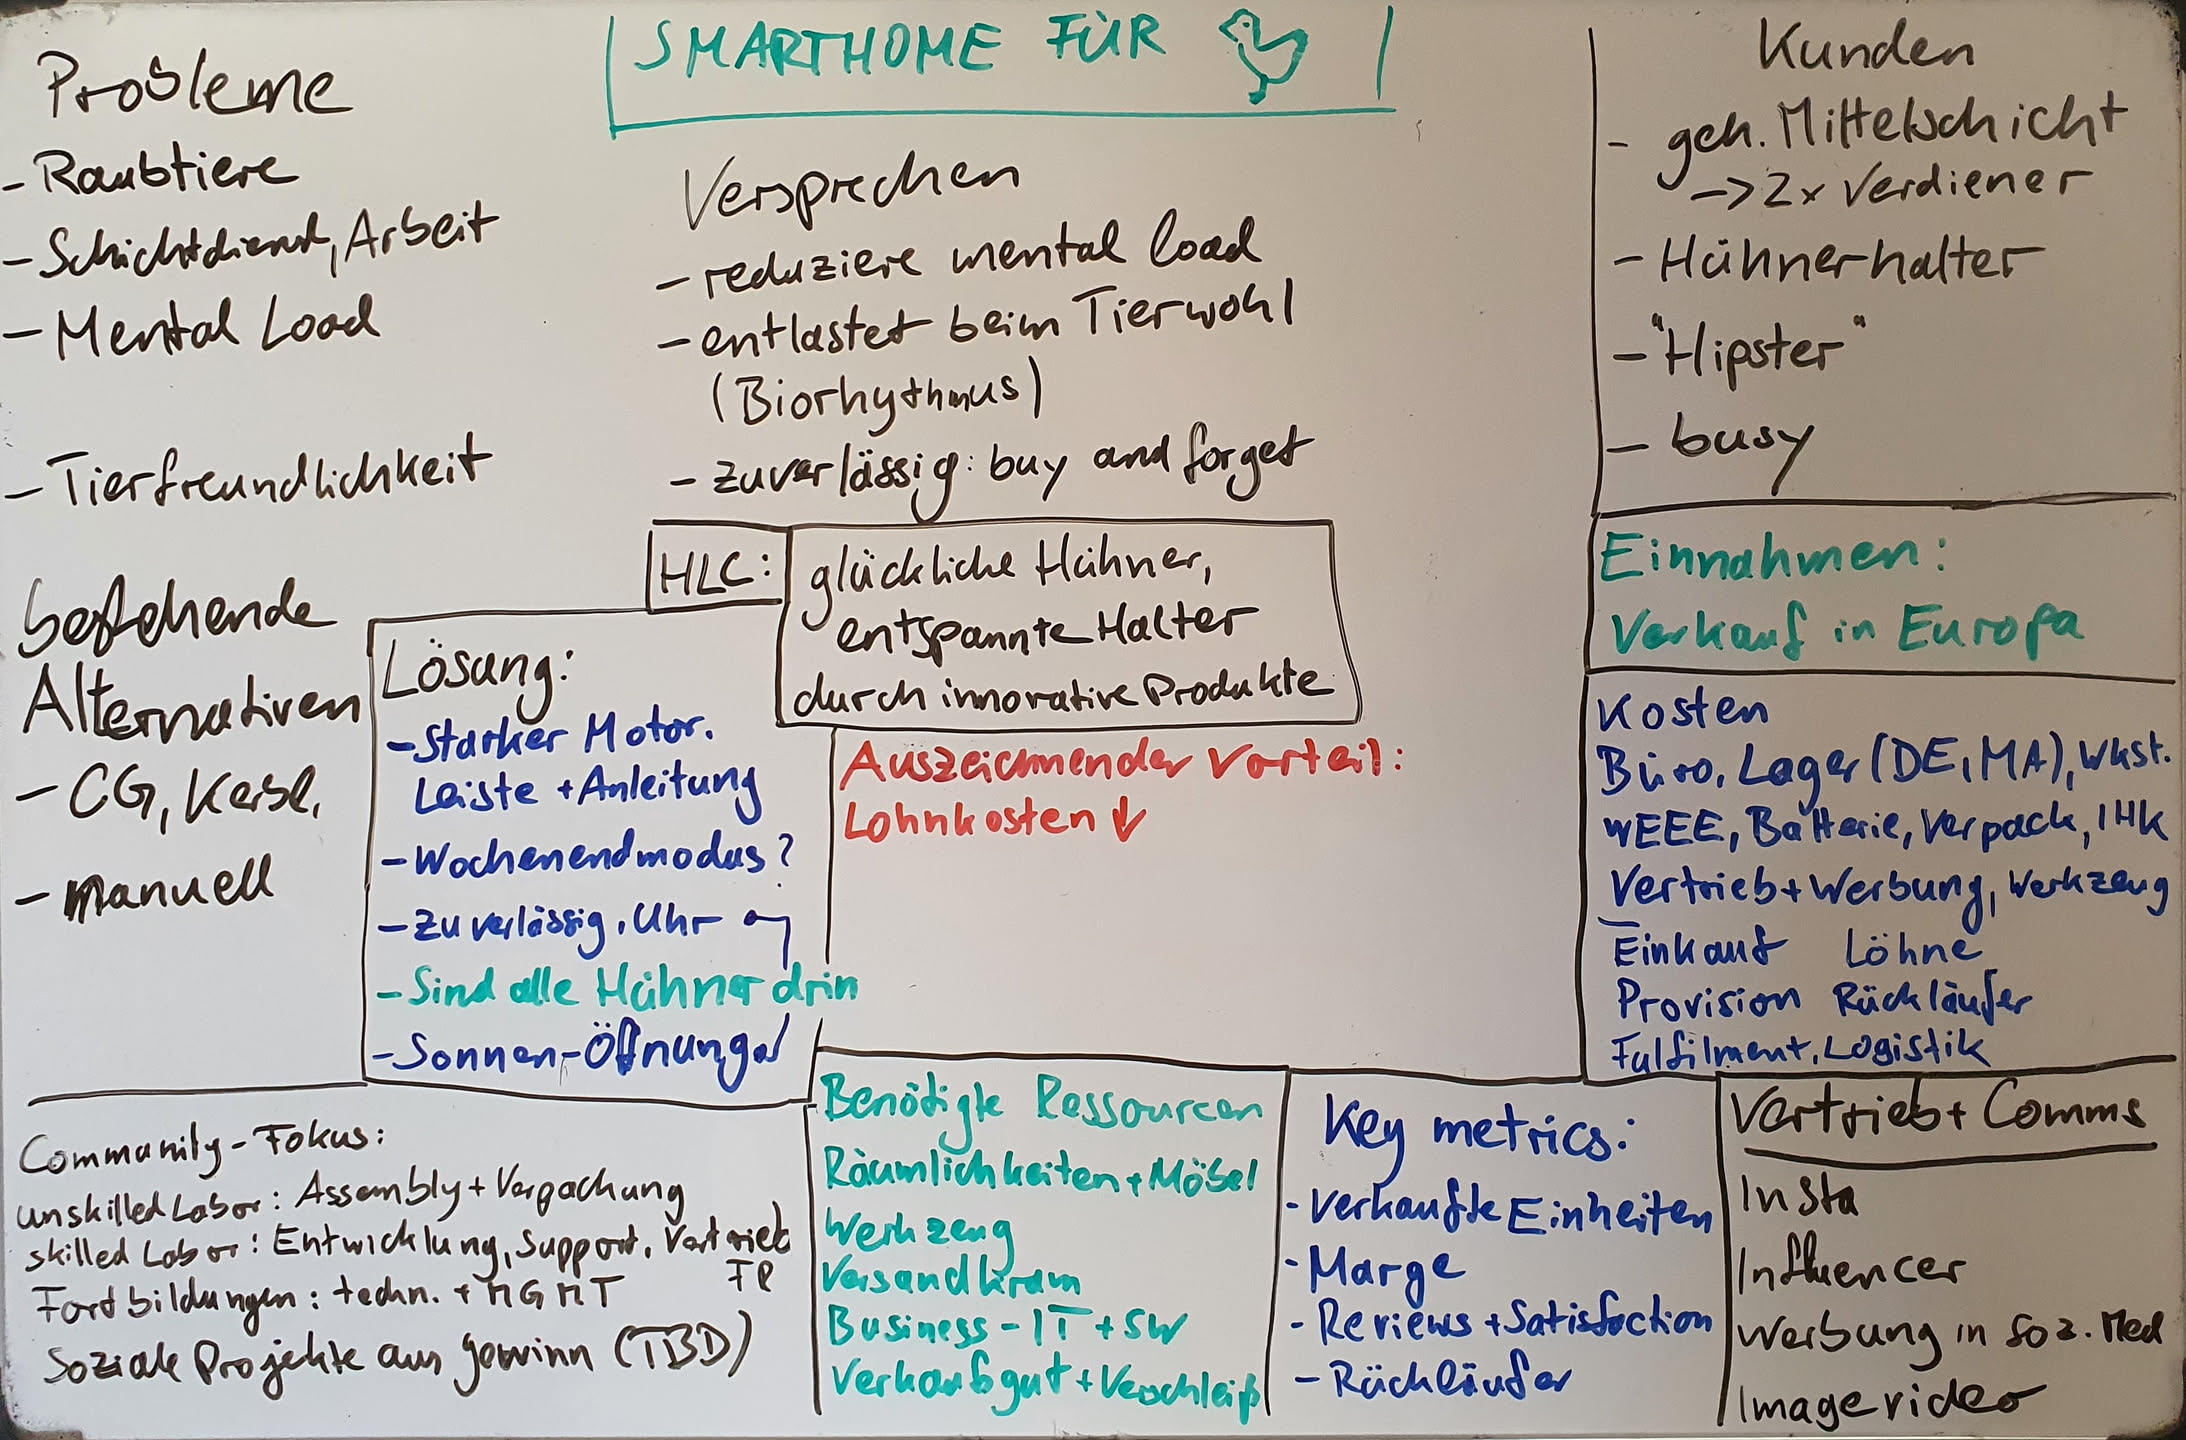 SMARTHOME FÜR
Probleme
- Raubtiere
- Schichtdienst, Arbeit
- Mental Load
- Tierfreundlichkeit
bestehende
Alternativen
- CG, Kerbl,
- manuell
Versprechen
- reduziere mental load
- entlastet beim Tierwohl
(Biorhythmus)
- zuverlässig: buy and forget
HLC:
glückliche Hühner,
entspannte Halter
durch innovative Produkte
Lösung:
- Starker Motor.
Leiste + Anleitung
- Wochenendmodus?
- zuverlässig. Uhr
- Sind alle Hühner drin
- Sonnen-Öffnung
Auszeichnender Vorteil:
Lohnkosten ↓
Kunden
- geh. Mittelschicht
-> 2x Verdiener
- Hühnerhalter
- "Hipster"
- busy
Einnahmen:
Verkauf in Europa
Kosten
Büro, Lager (DE, MA), Wkst.
WEEE, Batterie, Verpack, IHK
Vertrieb + Werbung, Werkzeug
Einkauf Löhne
Provision Rückläufer
Fulfilment, Logistik
Community-Fokus:
unskilled Labor: Assembly + Verpackung
skilled Labor: Entwicklung, Support, Vertrieb
Fortbildungen: techn. + MGMT
Soziale Projekte aus Gewinn (TBD)
Benötigte Ressourcen
Räumlichkeiten + Möbel
Werkzeug
Versandkram
Business-IT + SW
Verkaufsgut + Verschleiß
Key metrics:
- Verkaufte Einheiten
- Marge
- Reviews + Satisfaction
- Rückläufer
Vertrieb + Comms
Insta
Influencer
Werbung in Soz. Med
Imagevideo